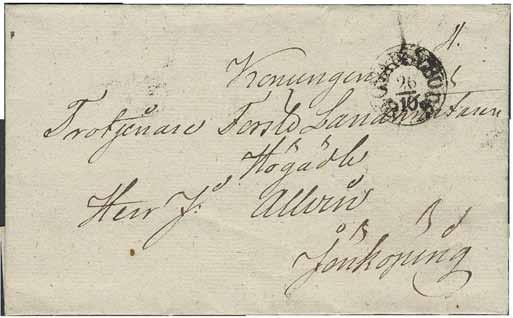 Konungens
26
10
Trotjenare Förste Landtmätaren
Högädle
Herr J. Allvin
Jönköping